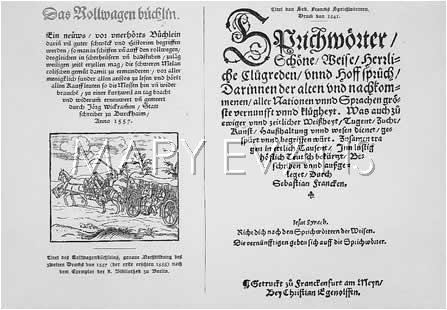 Das Rollwagen büchlin.
Ein neüws / vor unerhörts Büchlein
darin vil guter schwenck und Historien begriffen
werden / so man in schiffen uff auff den rollwegen,
deßgleichen in scherheüsern uñ badstuben / zu
weiligen zeiten erzellen mag / die schweren Melan
colischen gemüt damit zu ermünderen / vor aller
menigklich Junge und alten sunder zu lesen und hören
allen Kauffleuten so die Messen hin uñ wider
brauchē / zu einer kurtzweil an tag bracht
und zusamen gelesen
durch Jörg Wickramm / Stat
schreiber zu Burckhaim /
Anno 1557.
Titel des Rollwagenbüchleins, genaue Nachbildung des
zweiten Drucks von 1557 (der erste erschien 1555) nach
dem Exemplar der K. Bibliothek zu Berlin.
Titel von Seb. Francks Sprichwörtern,
Druck von 1541.
Sprichwörter /
Schöne / Weise / Herrli-
che Clügreden / vnnd Hoff sprüch /
Darinnen der alten vnd nachkom-
menen / aller Nationen vnnd Sprachen grös
ste vernunfft vnnd klügheyt. Was auch zů
ewiger vnnd zeitlicher Weißheyt / Tugent / Zucht /
Kunst / Haußhaltung vnnd wesen dienet / ges
pürt vnnd begriffen würt. Zusamen tra
gen in ettlich Tausent / Inn lustig
höflich Teutsch bekürtzt / Bes
chriben vnnd außge-
leget / Durch
Sebastian Francken.
Jesus Syrach.
Richt dich nach den Sprichwörtern der Weisen.
Die vernünfftigen geben sich auff die Sprichwörter.
Getruckt zů Franckenfurt am Meyn /
Bey Christian Egenolffen.
MARY EVANS